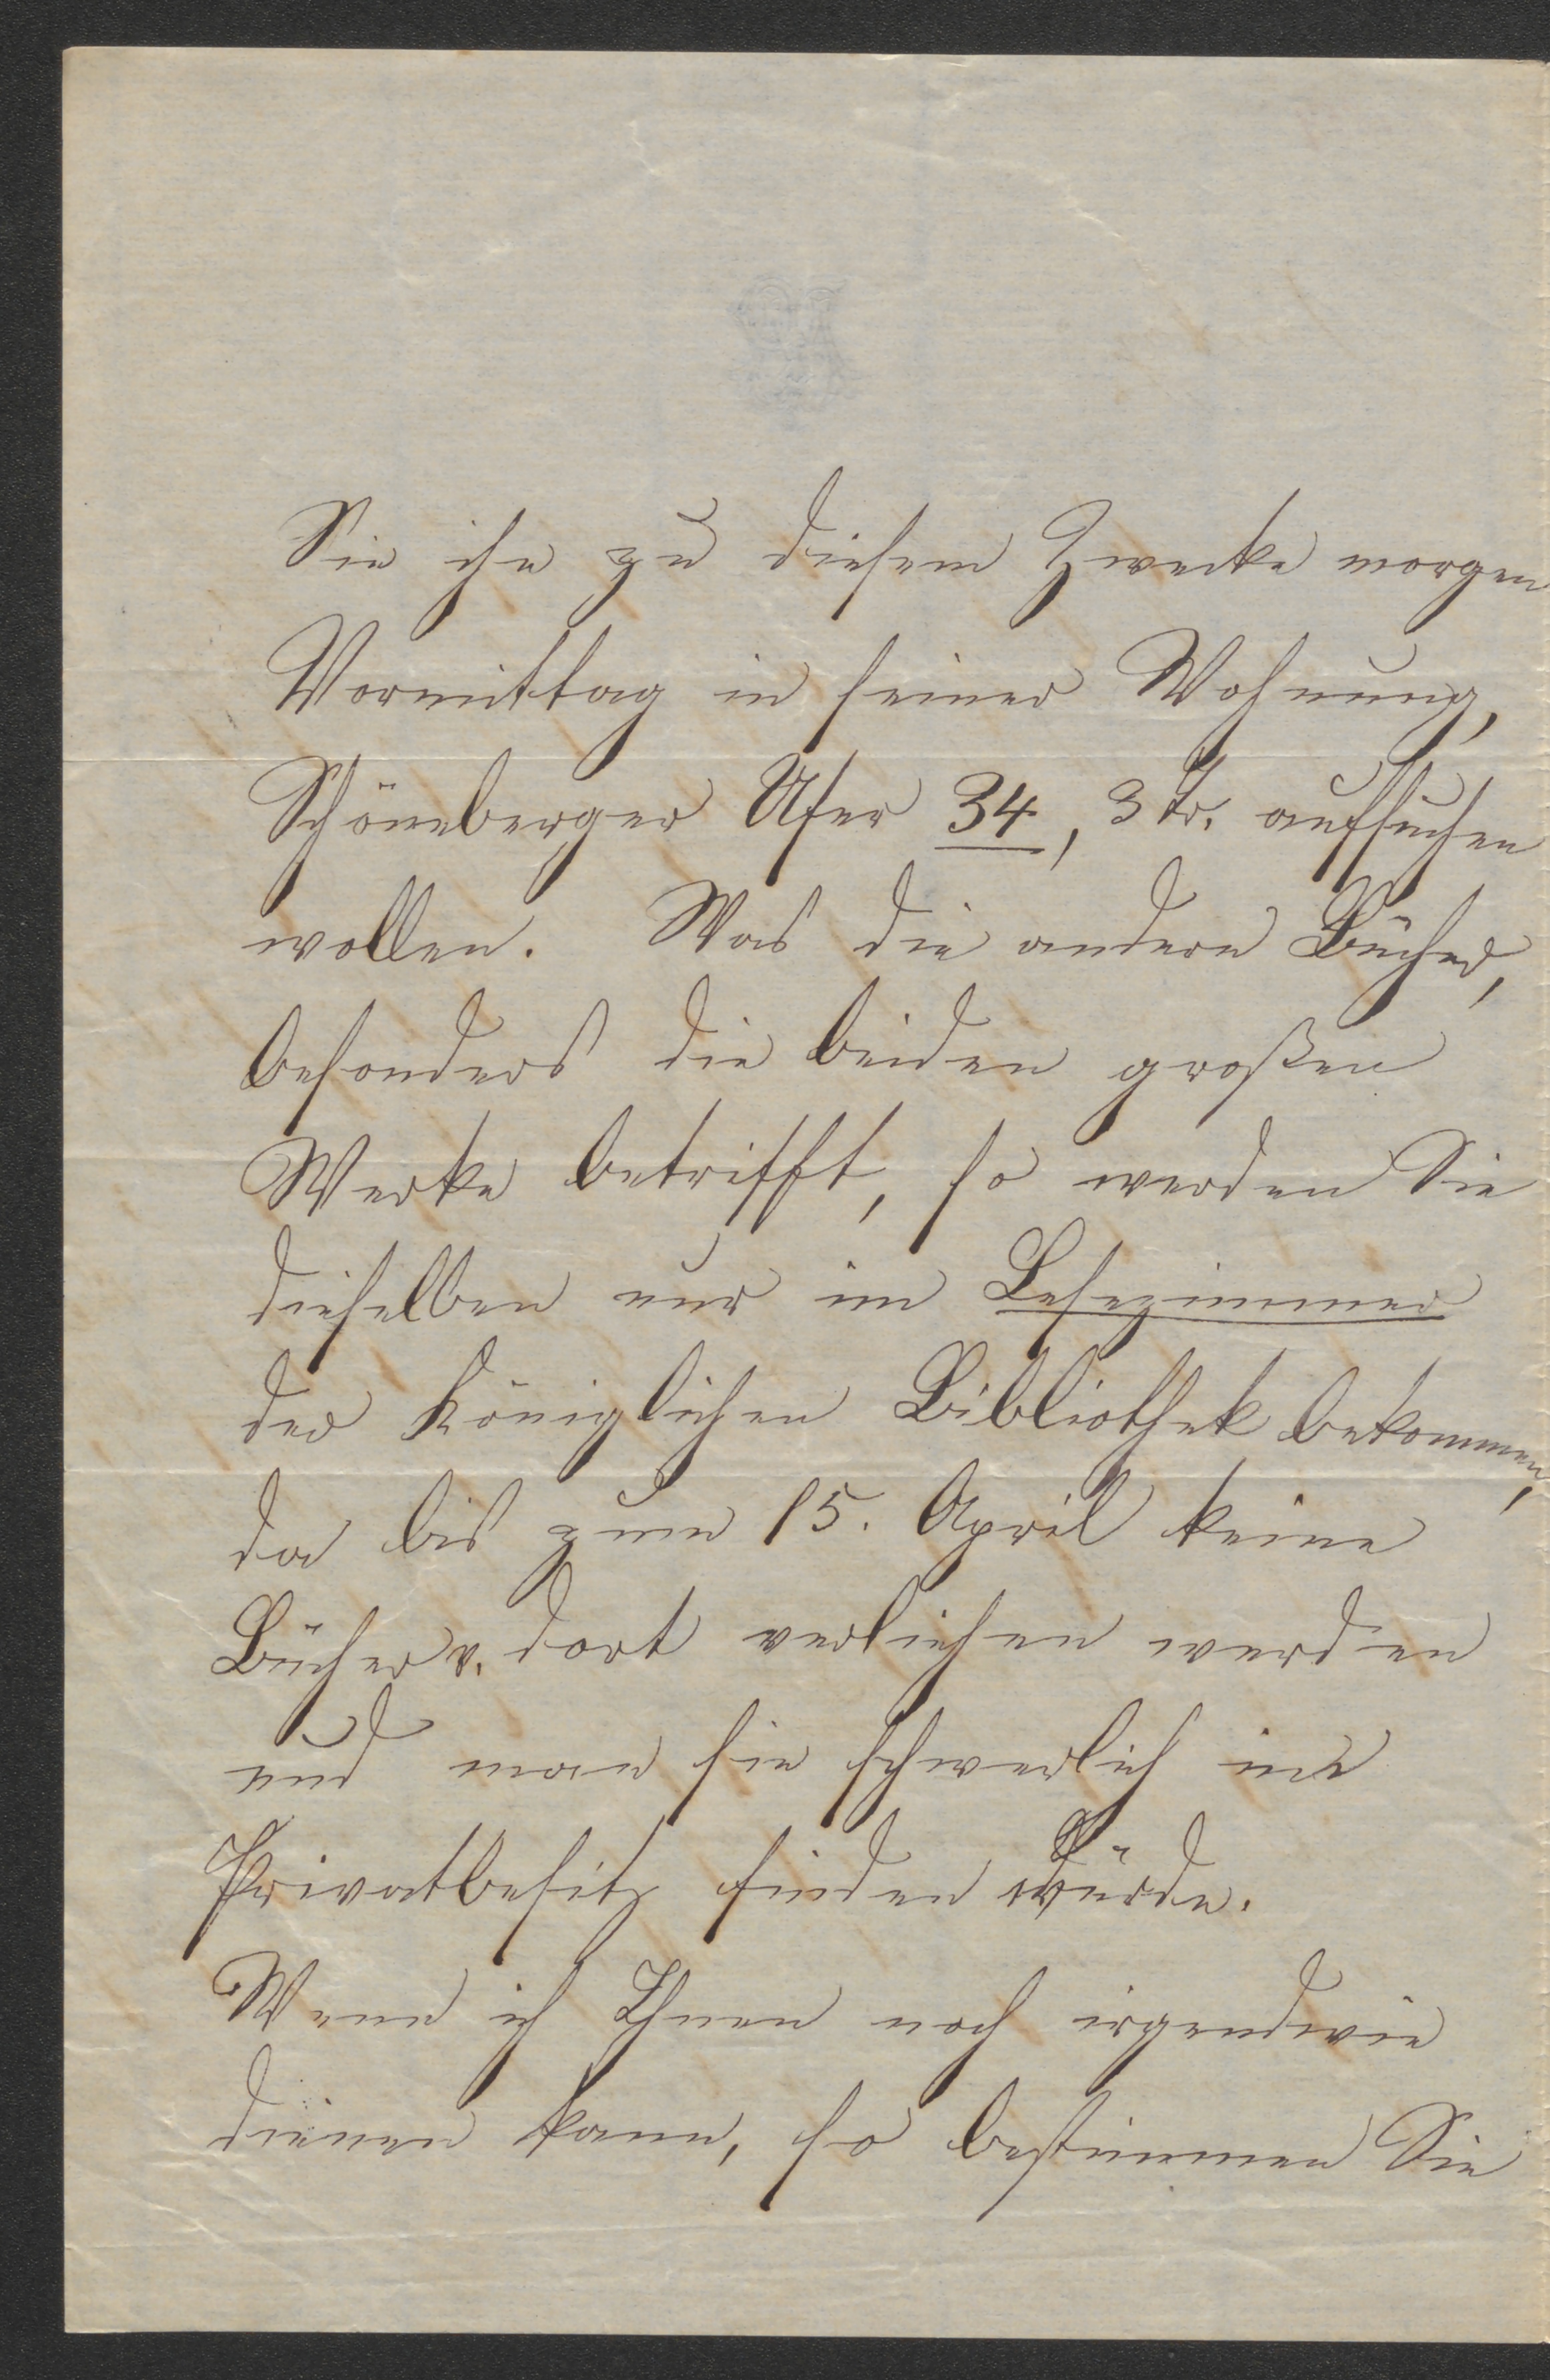 Sie ihn zu diesem Zwecke morgen
Vormittag in seiner Wohnung,
Schöneberger Ufer 34, 3 Tr. aufsuchen
wollen. Was die andern Bücher,
besonders die beiden großen
Werke betrifft, so werden Sie
dieselben nur im Lesezimmer
der Königlichen Bibliothek bekommen,
da bis zum 15. April keine
Bücher v. dort verliehen werden
und man sie schwerlich im
Privatbesitz finden würde.
Wenn ich Ihnen noch irgendwie
dienen kann, so bestimmen Sie